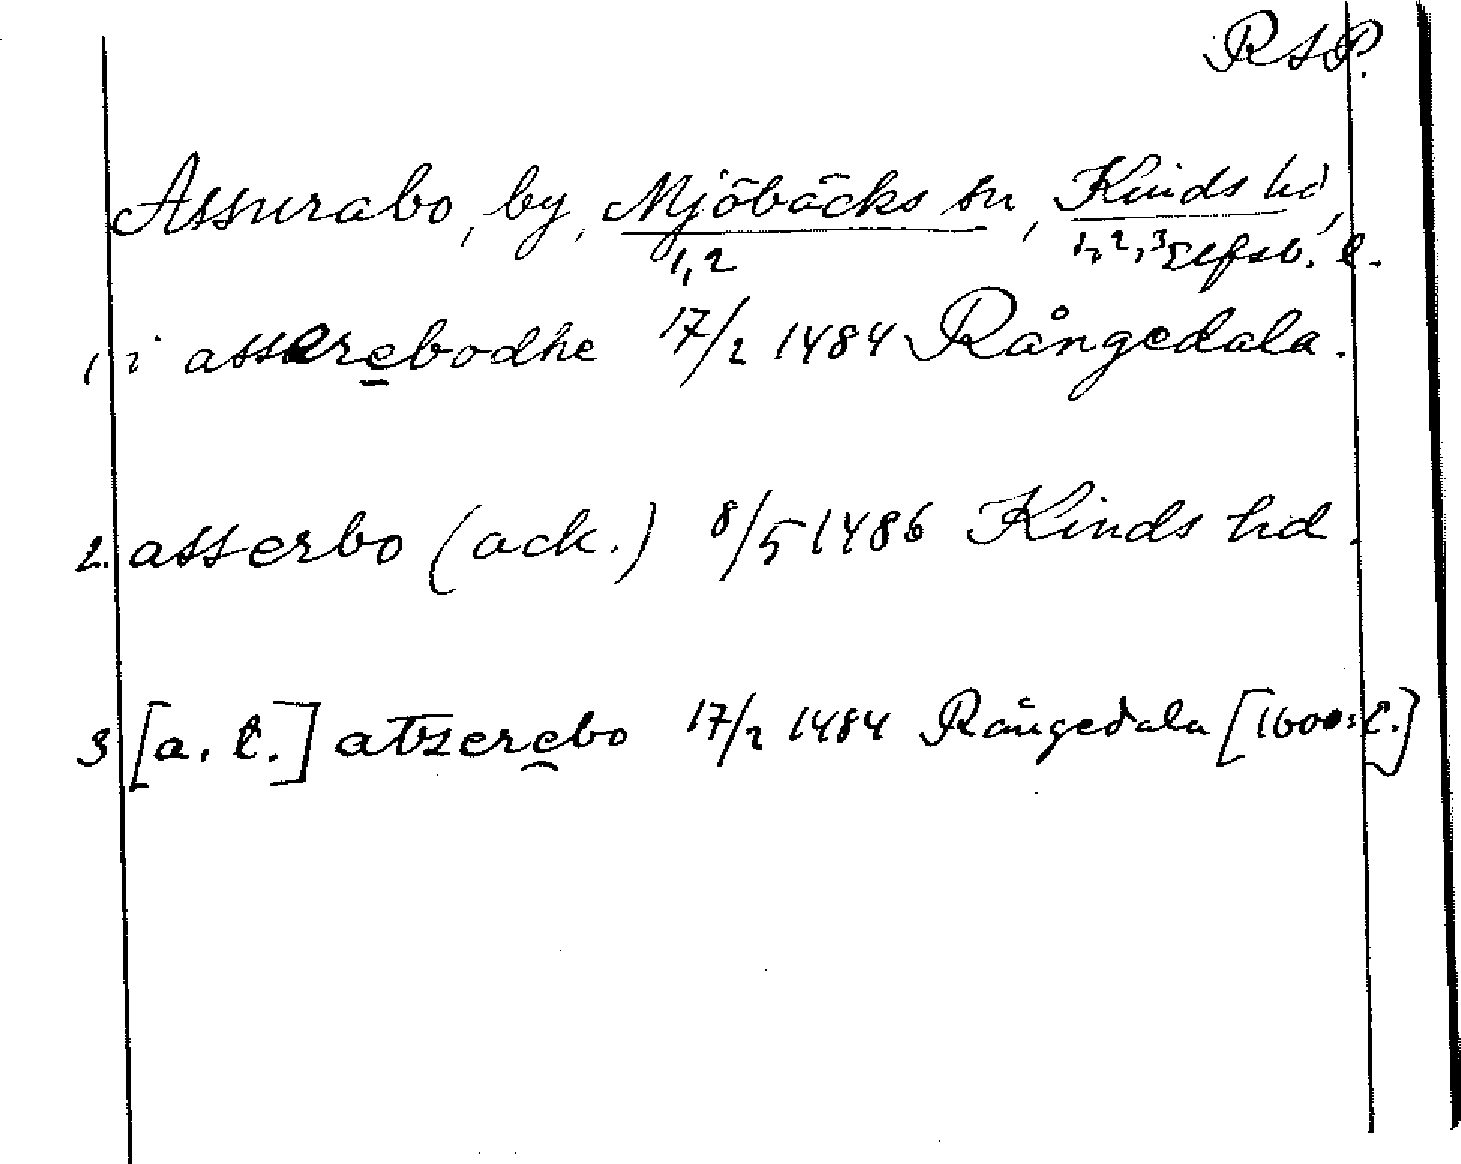 RSP.
Assurabo, by, Mjöbäcks sn, Kinds hd,
1,2 1,2,3 Elfsb. l.
1, i asserebodhe 17/2 1484 Rångedala.
2. asserbo (ack.) 8/5 1486 Kinds hd.
3 [a. l.] atzerebo 17/2 1484 Rångedala [1600: l.]